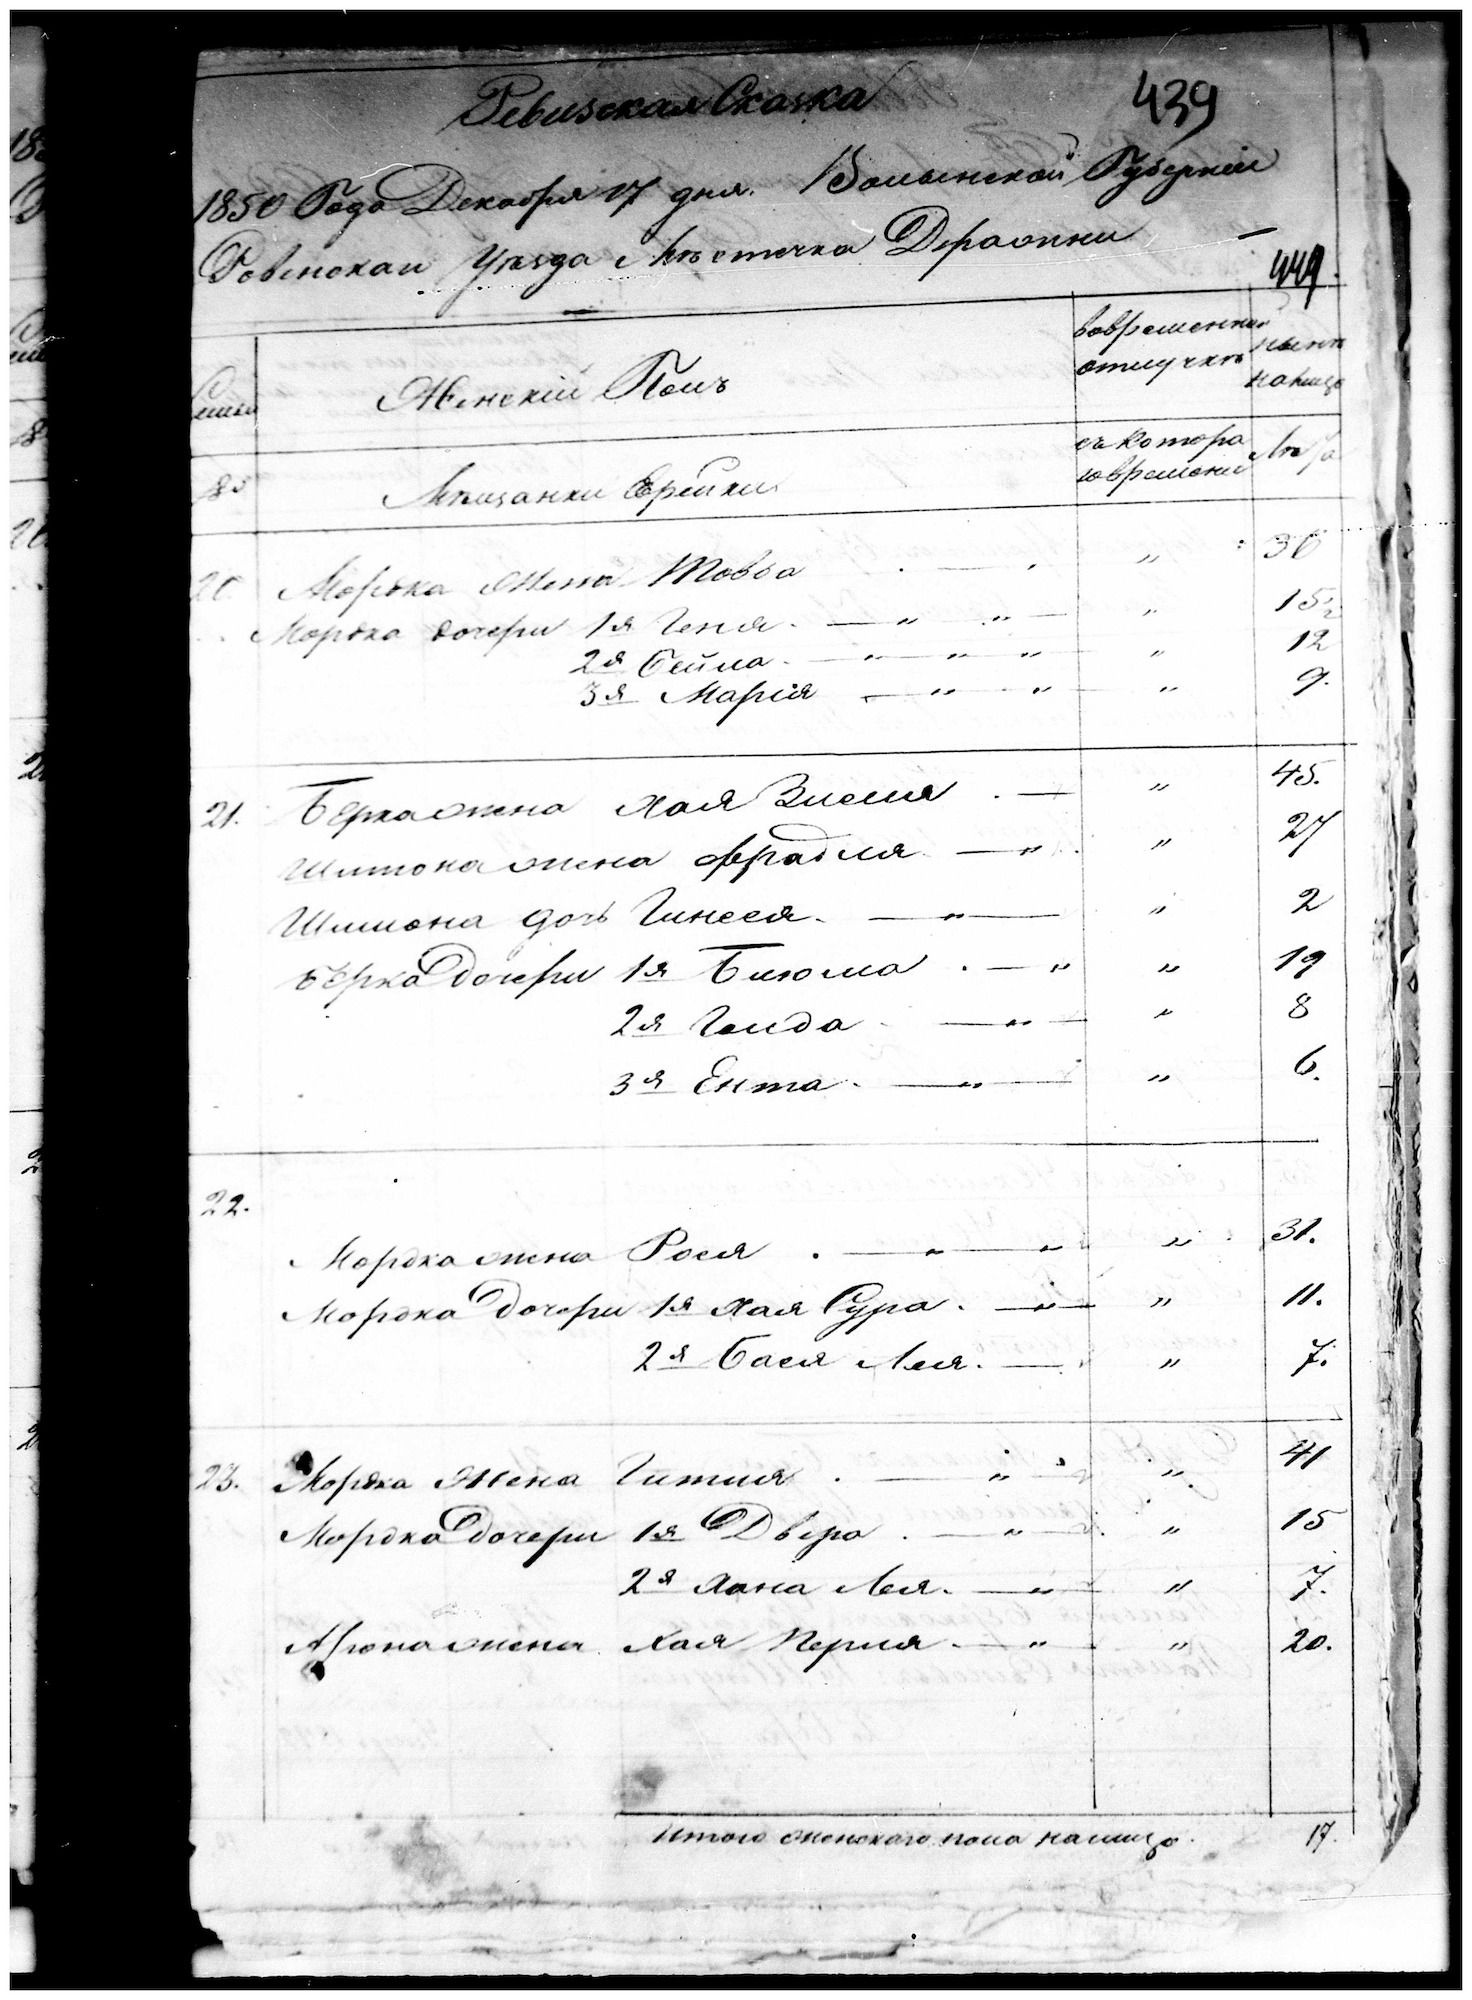 Ревизская Сказка 439
1850 Года Декабря 17 дня. Волынской Губернии
Ровенскаи Уезда Местечка Деражни
449.
Семьи
Женский Полъ
вовременной отлучке
ныне налицо
съ котора
го времени
Лета
Мещанки Еврейки
20 Мордка жена Товба " 36
Мордка дочери 1я Геня. " " " 15½
2я Бейла. " " " " 12
3я Марія " " " 9.
21. Берка жена Хая Злеля . " 45.
Шлиома жена Фрадля " " 27
Шлиома дочь Гинеся. " " 2
Берка Дочери 1я Блюма . " " 19
2я Генда " " 8
3я Ента. " " 6.
22.
Мордка жена Рося . " " " 31.
Мордка Дочери 1я Хая Сура. " " 11.
2я Бася Лея. " 7.
23. Мордка жена Гитля . " " 41
Мордка Дочери 1я Двера . " " 15
2я Хана Лея. " " 7.
Арона жена Хая Перля. " " 20.
Итого женскаго пола налицо. 17.